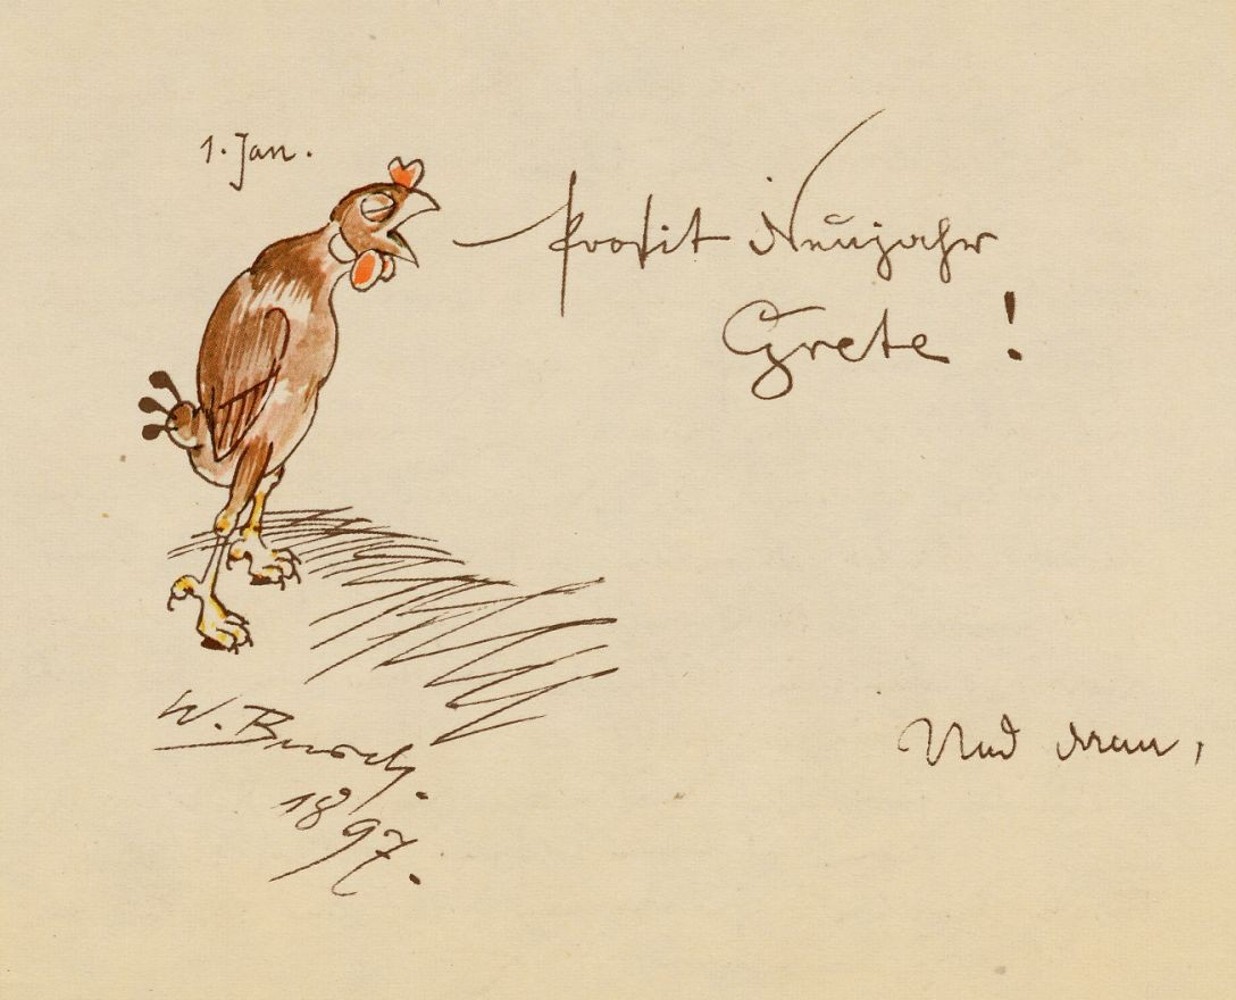 1. Jan.
Prosit Neujahr
Grete !
W. Busch.
1897.
Und